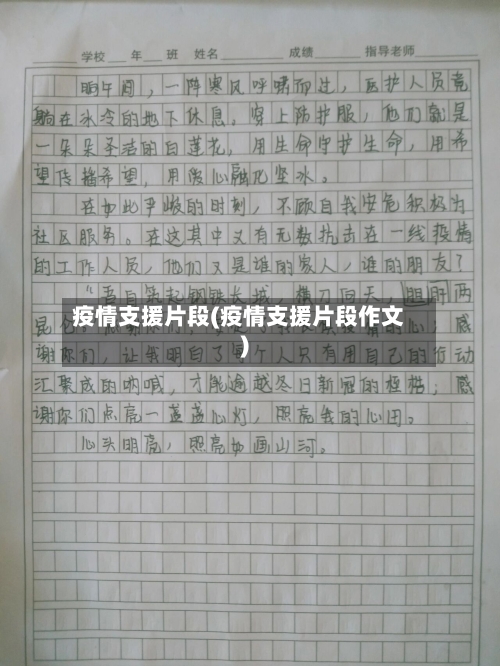 学校 年 班 姓名 成绩 指导老师
晌午间，一阵寒风呼啸而过，医护人员竟
躺在冰冷的地下休息。穿上防护服，他们就是
一朵朵圣洁的白莲花，用生命守护生命，用希
望传播希望，用爱心融化坚冰。
在如此严峻的时刻，不顾自我安危积极为
社区服务。在这其中又有无数抗击在一线疫情
的工作人员，他们又是谁的家人，谁的朋友？
“吾自筑起钢铁长城，横刀向天，肝胆两
昆仑
疫情支援片段(疫情支援片段作文
)
心；感
谢你们，让我明白了每个人只有用自己的行动
汇聚成的呐喊，才能逾越冬日新冠的桎梏；感
谢你们点亮一盏盏心灯，照亮我的心田。
心头明亮，照亮如画山河。